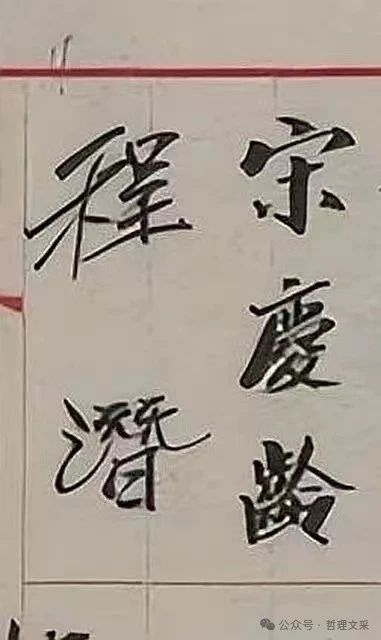 宋慶齡
程潛
公众号·哲理文采